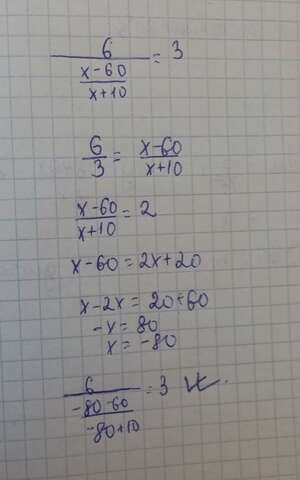 6
x-60
x+10
= 3
6/3 = x-60/x+10
x-60/x+10 = 2
x-60 = 2x+20
x-2x = 20+60
-x = 80
x = -80
6
-80-60
-80+10
= 3